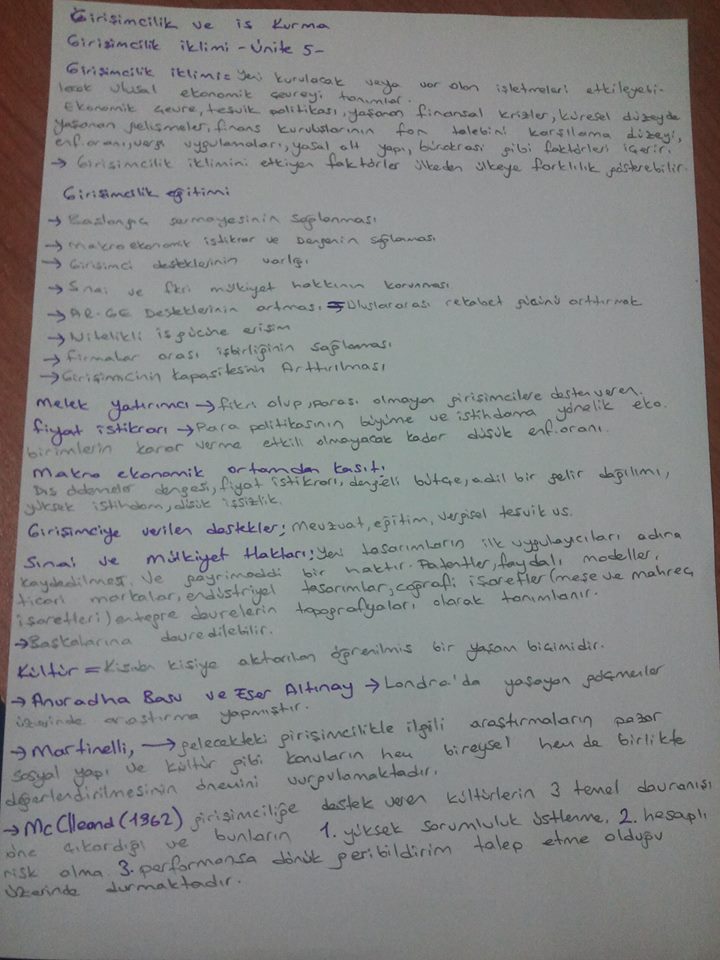 Girişimcilik ve iş Kurma
Girişimcilik iklimi -Ünite 5-
Girişimcilik iklimi= Yeni kurulacak veya var olan işletmeleri etkileyebi-
lecek ulusal ekonomik çevreyi tanımlar.
Ekonomik çevre, teşvik politikası, yaşanan finansal krizler, küresel düzeyde
yaşanan gelişmeler, finans kuruluşlarının fon talebini karşılama düzeyi,
enf.oranı, vergi uygulamaları, yasal alt yapı, bürokrasi gibi faktörleri içerir.
→ Girişimcilik iklimini etkiyen faktörler ülkeden ülkeye farklılık gösterebilir.
Girişimcilik eğitimi
→ Başlangıç sermayesinin sağlanması
→ Makro ekonomik istikrar ve Dengenin sağlaması
→ Girişimci desteklerinin varlığı
→ Sınai ve fikri mülkiyet hakkının korunması
→ AR-GE Desteklerinin artması = Uluslararası rekabet gücünü arttırmak
→ Nitelikli iş gücüne erişim
→ Firmalar arası işbirliğinin sağlaması
→ Girişimcinin Kapasitesinin Arttırılması
Melek yatırımcı → fikri olup, parası olmayan girişimcilere destek veren.
fiyat istikrarı → Para politikasının büyüme ve istihdama yönelik eko.
birimlerin karar verme etkili olmayacak kadar düşük enf.oranı.
Makro ekonomik ortamdan kasıt;
Dış ödemeler dengesi, fiyat istikrarı, dengeli bütçe, adil bir gelir dağılımı,
yüksek istihdam, düşük işsizlik.
Girişimciye verilen destekler; mevzuat, eğitim, vergisel teşvik vs.
Sınai ve mülkiyet Hakları; Yeni tasarımların ilk uygulayıcıları adına
kaydedilmesi ve gayrimaddi bir haktır. Patentler, faydalı modeller,
ticari markalar, endüstriyel tasarımlar, coğrafi işaretler (meşe ve mahreç
işaretleri) entegre devrelerin topografyaları olarak tanımlanır.
→ Başkalarına devredilebilir.
Kültür = Kişiden kişiye aktarılan öğrenilmiş bir yaşam biçimidir.
→ Anuradha Basu ve Eser Altınay → Londra'da yaşayan göçmenler
üzerinde araştırma yapmıştır.
→ Martinelli, → gelecekteki girişimcilikle ilgili araştırmaların pazar
sosyal yapı ve kültür gibi konuların hem bireysel hem de birlikte
değerlendirilmesinin önemini vurgulamaktadır.
→ McClleand (1962) girişimciliğe destek veren kültürlerin 3 temel davranışı
öne çıkardığı ve bunların 1. yüksek sorumluluk üstlenme, 2. hesaplı
risk alma 3. performansa dönük geribildirim talep etme olduğu
üzerinde durmaktadır.